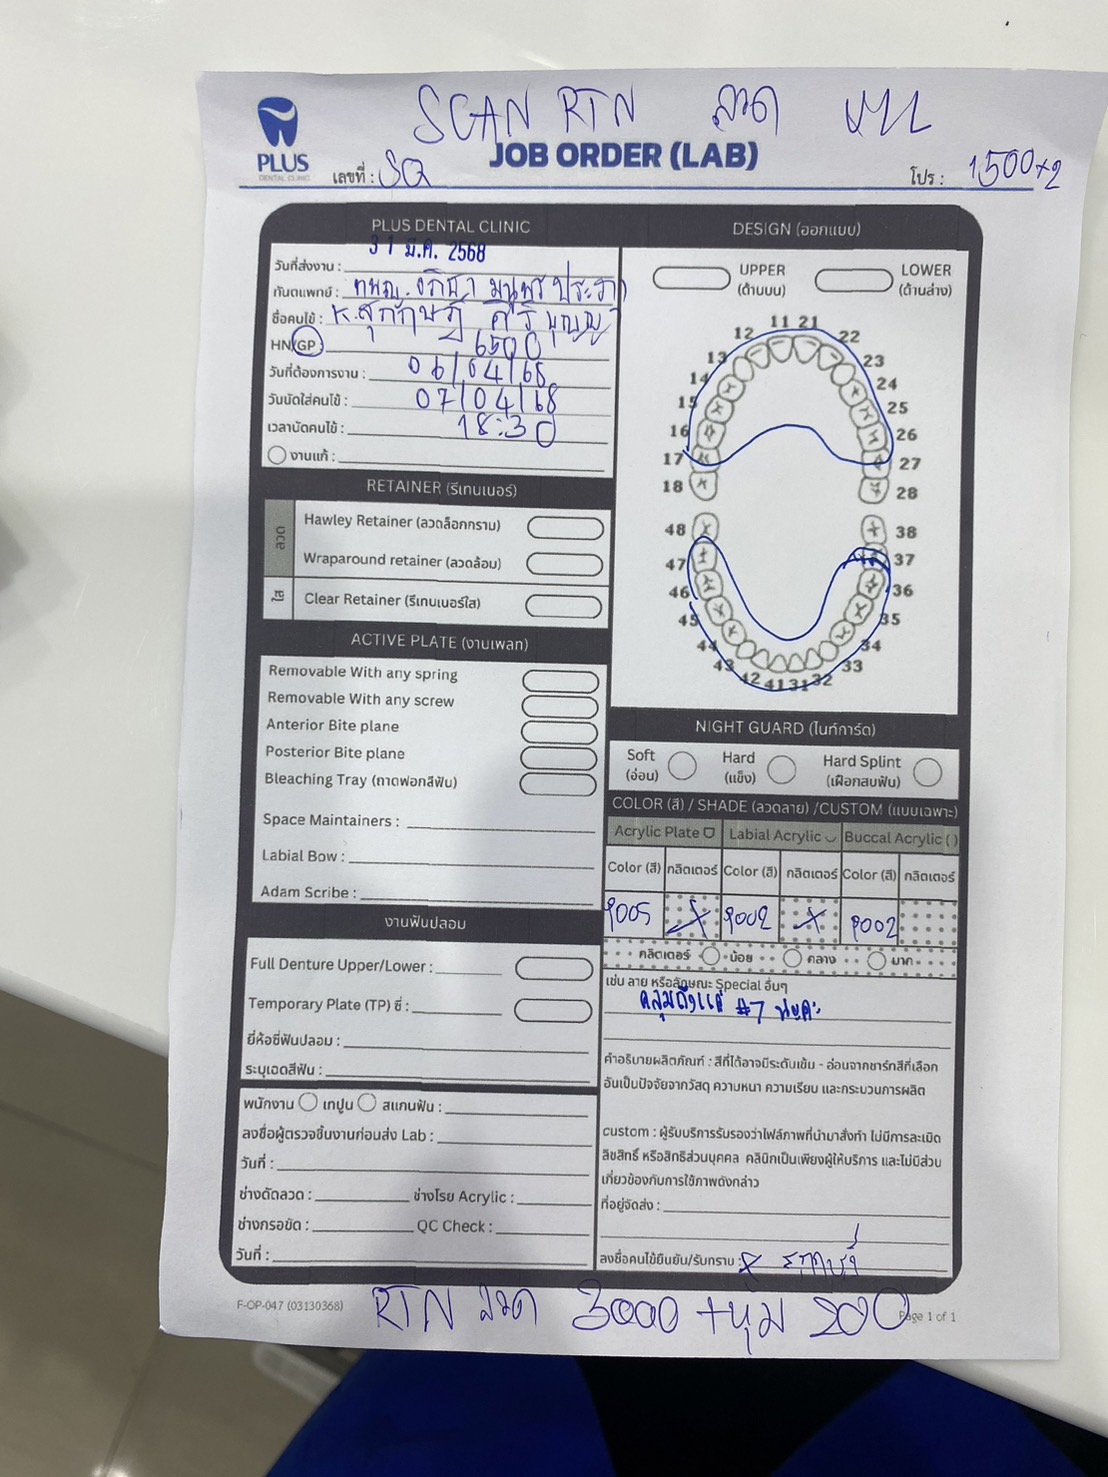 SCAN RTN ลวด บน/ล
PLUS
DENTAL CLINIC
JOB ORDER (LAB)
เลขที่ : SQ
โปร : 1500x2
PLUS DENTAL CLINIC
31 มี.ค. 2568
วันที่ส่งงาน :
ทันตแพทย์ : ทพญ.
ชื่อคนไข้ : K.
HN/GP : 6500
วันที่ต้องการงาน : 06/04/68
วันนัดใส่คนไข้ : 07/04/68
เวลานัดคนไข้ : 18:30
งานแก้ :
RETAINER (รีเทนเนอร์)
ลวด
Hawley Retainer (ลวดล็อกกราม)
Wraparound retainer (ลวดล้อม)
ใส
Clear Retainer (รีเทนเนอร์ใส)
ACTIVE PLATE (งานเพลท)
Removable With any spring
Removable With any screw
Anterior Bite plane
Posterior Bite plane
Bleaching Tray (ถาดฟอกสีฟัน)
Space Maintainers :
Labial Bow :
Adam Scribe :
งานฟันปลอม
Full Denture Upper/Lower :
Temporary Plate (TP) ซี่ :
ยี่ห้อซี่ฟันปลอม :
ระบุเฉดสีฟัน :
พนักงาน เทปูน สแกนฟัน :
ลงชื่อผู้ตรวจชิ้นงานก่อนส่ง Lab :
วันที่ :
ช่างดัดลวด : ช่างโรย Acrylic :
ช่างกรอขัด : QC Check :
วันที่ :
DESIGN (ออกแบบ)
UPPER LOWER
(ด้านบน) (ด้านล่าง)
11 21
12 22
13 23
14 24
15 25
16 26
17 27
18 28
48 38
47 37
46 36
45 35
44 34
43 33
42 41 31 32
NIGHT GUARD (ไนท์การ์ด)
Soft Hard Hard Splint
(อ่อน) (แข็ง) (เฝือกสบฟัน)
COLOR (สี) / SHADE (ลวดลาย) /CUSTOM (แบบเฉพาะ)
Acrylic Plate Labial Acrylic Buccal Acrylic ( )
Color (สี) กลิตเตอร์ Color (สี) กลิตเตอร์ Color (สี) กลิตเตอร์
P005 X P002 X P002
กลิตเตอร์ น้อย กลาง มาก
เช่น ลาย หรือลักษณะ Special อื่นๆ
คลุมถึงแค่ #7 นะคะ
คำอธิบายผลิตภัณฑ์ : สีที่ได้อาจมีระดับเข้ม - อ่อนจากชาร์ทสีที่เลือก
อันเป็นปัจจัยจากวัสดุ ความหนา ความเรียบ และกระบวนการผลิต
custom : ผู้รับบริการรับรองว่าไฟล์ภาพที่นำมาสั่งทำ ไม่มีการละเมิด
ลิขสิทธิ์ หรือสิทธิส่วนบุคคล คลินิกเป็นเพียงผู้ให้บริการ และไม่มีส่วน
เกี่ยวข้องกับการใช้ภาพดังกล่าว
ที่อยู่จัดส่ง :
ลงชื่อคนไข้ยืนยัน/รับทราบ :
F-OP-047 (03130368)
RTN ลวด 3000 +หุ้ม 200
Page 1 of 1